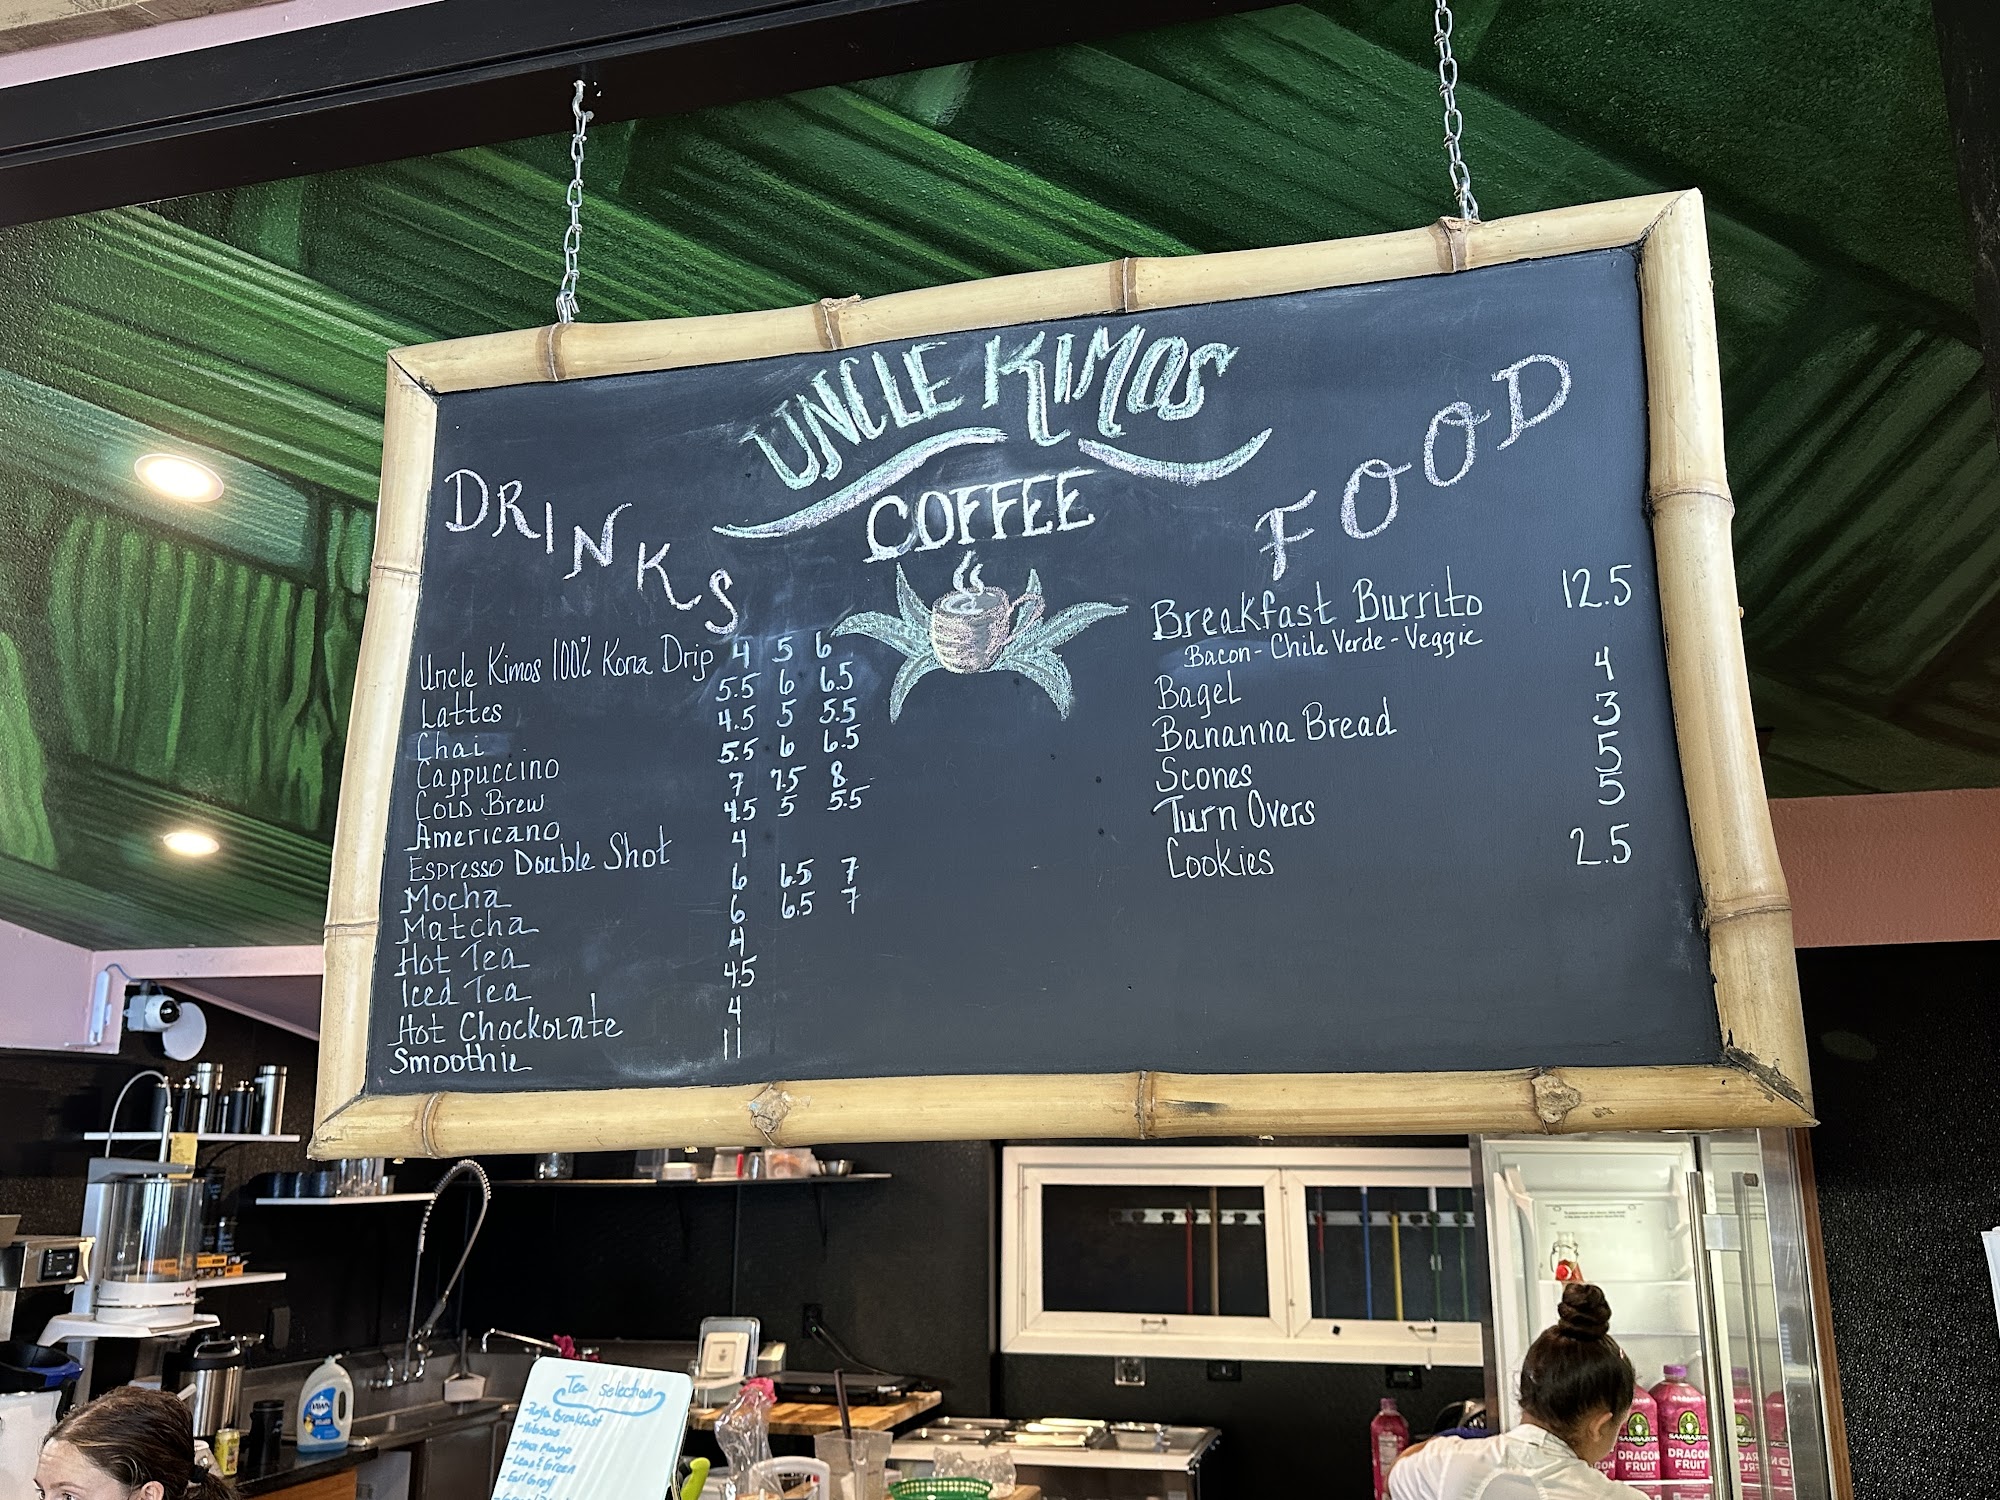 UNCLE KIMOS
COFFEE
DRINKS
Uncle Kimos 100% Kona Drip 4 5 6
Lattes 5.5 6 6.5
Chai 4.5 5 5.5
Cappuccino 5.5 6 6.5
Cold Brew 7 7.5 8
Americano 4.5 5 5.5
Espresso Double Shot 4
Mocha 6 6.5 7
Matcha 6 6.5 7
Hot Tea 4
Iced Tea 4.5
Hot Chockolate 4
Smoothie 11
FOOD
Breakfast Burrito 12.5
Bacon - Chile Verde - Veggie
Bagel 4
Bananna Bread 3
Scones 5
Turn Overs 5
Cookies 2.5
Tea Selection
Breakfast
- Hibiscus
- Earl Grey
DAWN
SAMBAZON
DRAGON
FRUIT